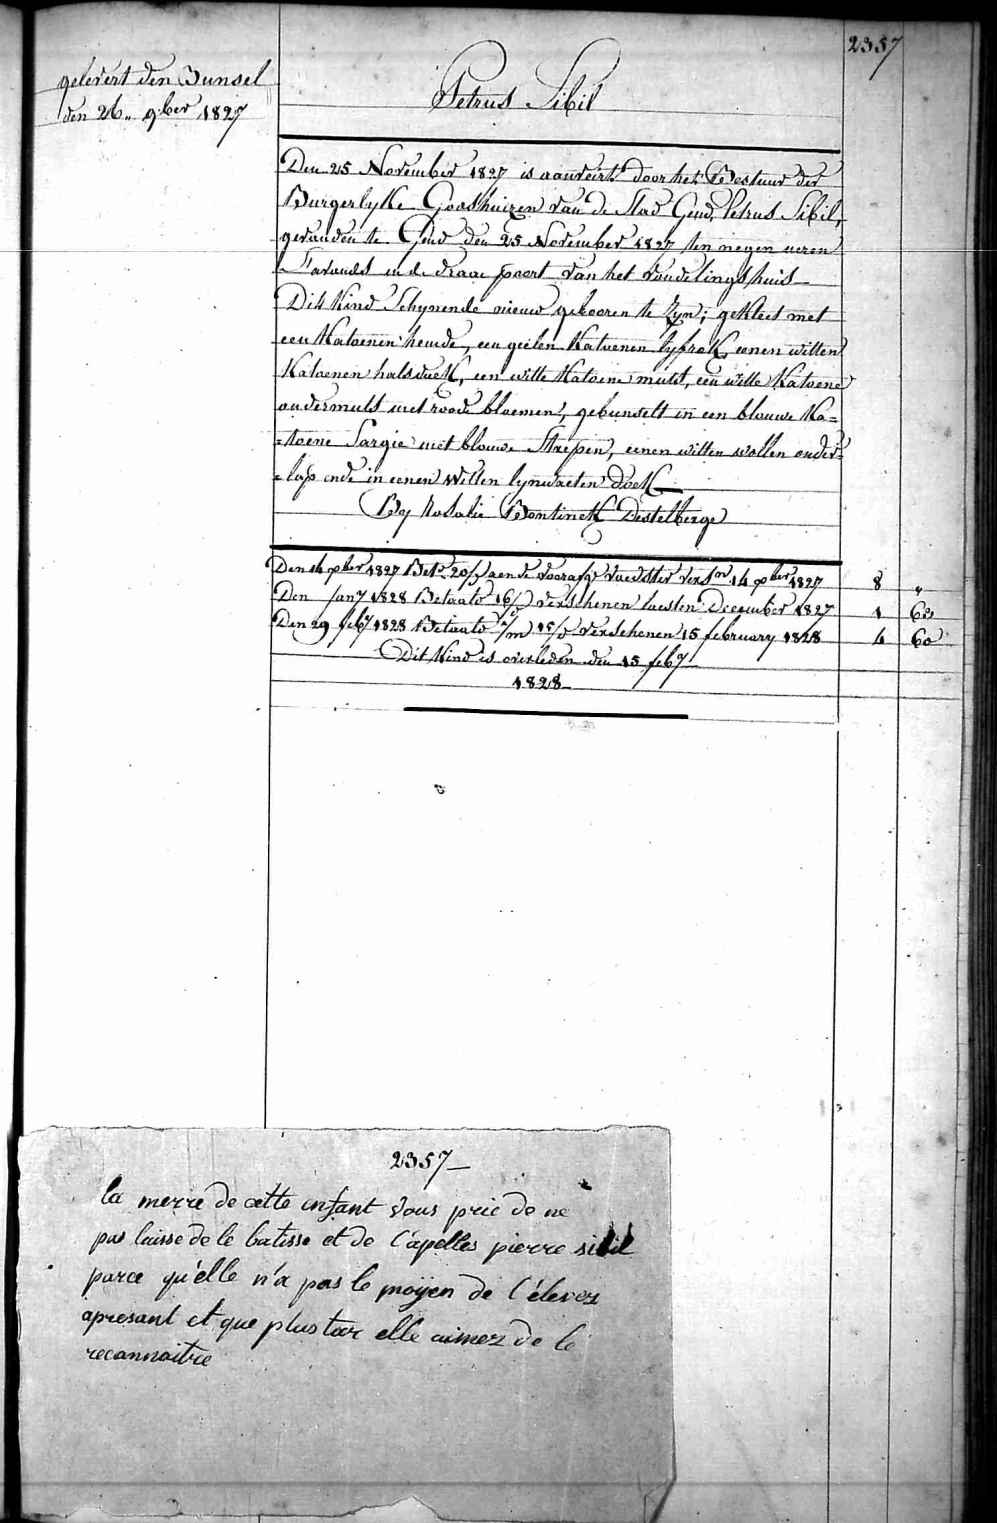 2357
gelevert den Bunsel
den 26„ 9ber 1827
Petrus Sibil
Den 25 November 1827 is aanveirt door het Bestuur der
Burgerlyke Godshuizen van de Stad Gend, Petrus Sibil,
gevonden te Gend den 25 November 1827 ten negen uren
s'avonds in de draai poort van het vondelingshuis
Dit kind schynende nieuw gebooren te zyn; gekleet met
een katoenen hemde, een geelen katoenen lyfrok, eenen witten
katoenen halsdoek, een witte katoene muts, een witte katoene
ondermuts met roode bloemen, gebunselt in een blauwe ka=
=toene sargie met blauwe strepen, eenen witten wollen onder=
=lap ende in eenen witten lynwaeten doek
By Rosalie Bontinck Destelberge
Den 14 xber 1827 Bet. 20/d aen de voorafg. voedster versn 14 xber 1827 8 „
Den Jany 1828 Betaald 16/d verschenen laesten December 1827 1 68
Den 29 feby 1828 Betaald /m 15/d verschenen 15 february 1828 4 60
Dit kind is overleden den 15 feby
1828
2357
la merre de cette enfant vous prie de ne
pas laisse de le batisse et de l'apelles pierre sibil
parce qu'elle n'a pas le moÿen de l'élevez
apresant et que plus tar elle aimez de le
reconnaitre